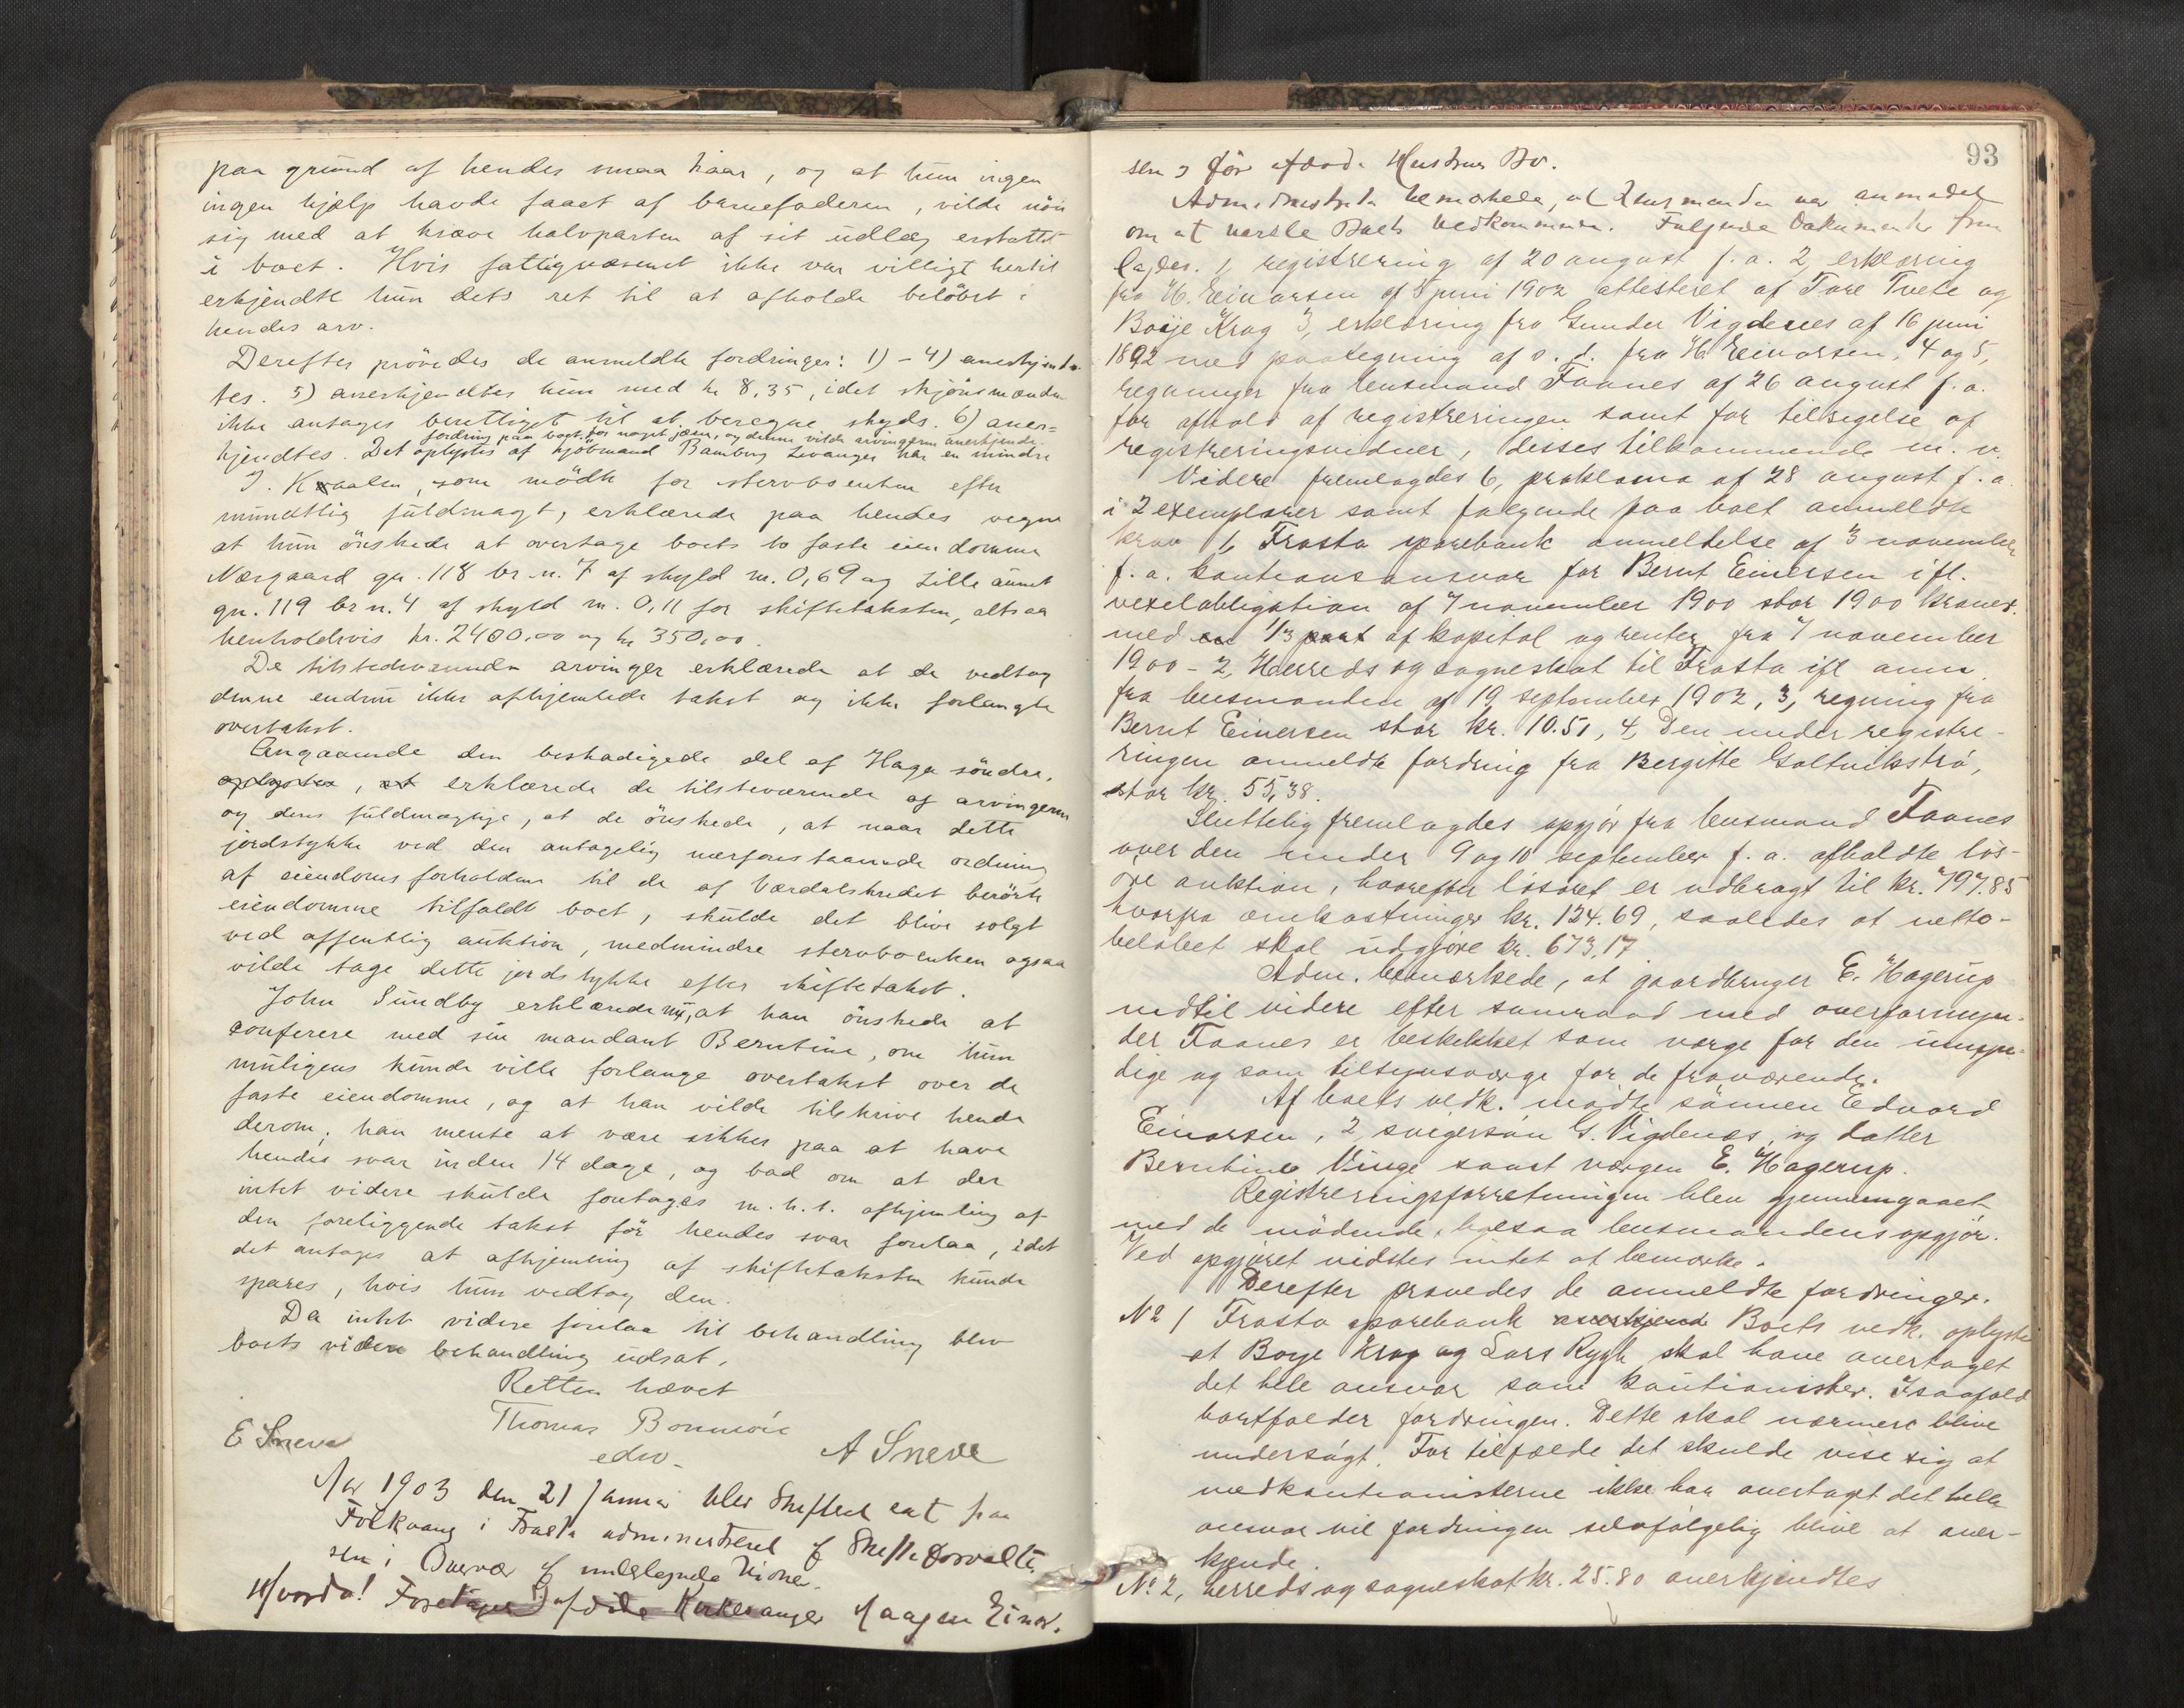 paa grund af hendes smaa kaar, og at hun ingen
ingen hjælp havde faaet af barnefaderen, vilde nöie
sig med at kræve halvparten af sit udlæg erstattet
i boet. Hvis fattigvæsenet ikke var villigt hertil
erkjendte hun dets ret til at afholde belöbet i
hendes arv.
Derefter prövedes de anmeldte fordringer: 1) - 4) anerkjend-
tes. 5) anerkjendtes kun med kr 8,35, idet skjönsmændene
ikke antages berettiget til at beregne skyds. 6) aner=
fordring paa boet for noget jern, og denne vilde arvingerne anerkjende.
kjendtes. Det oplystes at kjöbmand Bamberg Levanger har en mindre
J. Kvaalen, som mödte for stervboenken efter
mundtlig fuldmagt, erklærede paa hendes vegne
at hun önskede at overtage boets to faste eiendomme
Norgaard gn. 118 br.n. 7 af skyld m. 0,69 og Lille aunet
gn. 119 br n. 4 af skyld m. 0,11 for skiftetaksten, altsaa
henholdsvis kr. 2400,00 og kr 350,00.
De tilstedeværende arvinger erklærede at de vedtog
denne endnu ikke afhjemlede takst og ikke forlangte
overtakst.
Angaaende den beskadigede del af Haga söndre,
oplystes, at erklærede de tilsteværende af arvingerne
og deres fuldmægtige, at de önskede, at naar dette
jordstykke ved den antagelig nærforestaaende ordning
af eiendomsforholdene til de af Værdalskredet berörte
eiendomme tilfaldt boet, skulde det blive solgt
ved offentlig auktion, medmindre stervboenken ogsaa
vilde tage dette jordstykke efter skiftetakst.
John Sundby erklærede nu, at han önskede at
conferere med sin mandant Berntine, om hun
muligens kunde ville forlange overtakst over de
faste eiendomme, og at han vilde tilskrive hende
derom; han mente at være sikker paa at have
hendes svar inden 14 dage, og bad om at der
intet videre skulde foretages m.h.t. afhjemling af
den foreliggende takst för hendes svar forelaa, idet
det antages at afhjemling af skiftetaksten kunde
spares, hvis hun vedtog den.
Da intet videre forelaa til behandling blev
boets videre behandling udsat.
Retten hævet
Thomas Bonnevie
edsv.
E Sneve A Sneve
Aar 1903 den 21 Januar blev Skifteret sat paa
Folkvang i Frosta administreret af Skifteforvalte-
ren i Overvær af undertegnede Vidner.
Hvorda! Foretages Kirkesanger Haagen Einar-
93
sen og för afdöde Hustrues Bo.
Administr. bemærkede, at Lensmanden var anmodet
om at varsle Boets Vedkommende. Følgende Dokumenter frem
lagdes. 1, registrering af 20 august f.a. 2 erklæring
fra H. Einarsen af 5 juni 1902 attesteret af Tore Tvete og
Boije Krog 3, erklæring fra Gunder Vigdenes af 16 juni
1892 med paategning af s.d. fra H. Einarsen, 4 og 5,
regninger fra lensmand Faanes af 26 august f.a.
for afhold af registreringen samt for tilsigelse af
registreringsvidner, disses tilkommende m.v.
Videre fremlagdes 6, proklama af 28 august f.a.
i 2 exemplarer samt følgende paa boet anmeldte
krav 1, Frosta sparebank anmeldelse af 3 november
f.a. kautionsansvar for Bernt Einersen ifl.
vexelobligation af 7 november 1900 stor 1900 kroner.
med en 1/3 part af kapital og renter fra 7 november
1900 - 2, Herreds og sogneskat til Frosta ifl anm.
fra lensmanden af 19 september 1902, 3, regning fra
Bernt Einersen stor kr. 10.51, 4, Den under registre-
ringen anmeldte fordring fra Bergitte Galtvikströ,
stor kr. 55,38.
Sluttelig fremlagdes opgjör fra lensmand Faanes
over den under 9 og 10 september f.a. afholdte lös-
öre auktion, hvorefter lösöret er udbragt til kr. 797.85
hvorfra omkostninger kr. 124.69, saaledes at netto-
belöbet skal udgjöre kr. 673,17
Adm. bemærkede, at gaardbruger E. Hagerup
indtil videre efter samraad med overformyn-
der Faanes er beskikket som værge for den umyn-
dige og som tilsynsværge for de fraværende.
Af boets vedk. mödte sönnen Edvard
Einarsen, 2, svigersön G. Vigdenes, og datter
Berntine Vinge samt værgen E. Hagerup.
Registreringsforretningen blev gjennemgaaet
med de mödende, ligesaa lensmandens opgjör.
Ved opgjöret vidstes intet at bemærke.
Derefter prøvedes de anmeldte fordringer.
No 1 Frosta sparebank anerkjend Boets vedk. oplyste
at Boye Krog og Lars Rygh skal have overtaget
det hele ansvar som kautionister. Isaafald
bortfalder fordringen. Dette skal nærmere blive
undersögt. For tilfælde det skulde vise sig at
medkautionisterne ikke har overtaget det hele
ansvar vil fordringen selvfølgelig blive at aner-
kjende.
No 2, herreds og sogneskat kr. 25.80 anerkjendtes